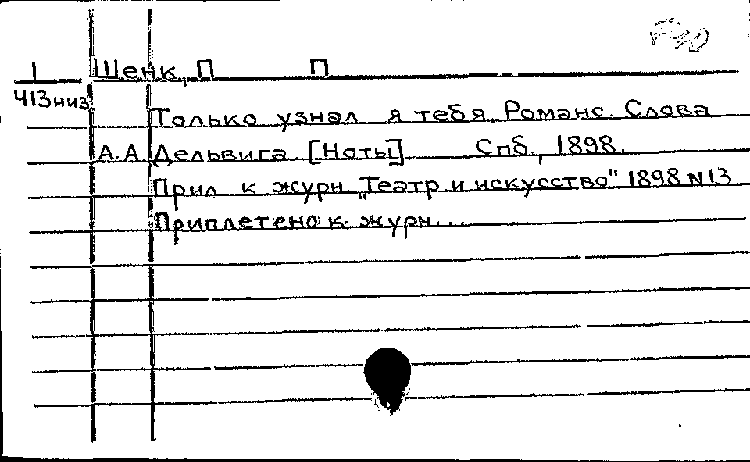 1 Шенк, П П
Ч13низ
Только узнал я тебя. Романс. Слова
А.А. Дельвига. [Ноты] Спб., 1898.
Прил к журн „Театр и искусство" 1898 N 13
Приплетено к журн...